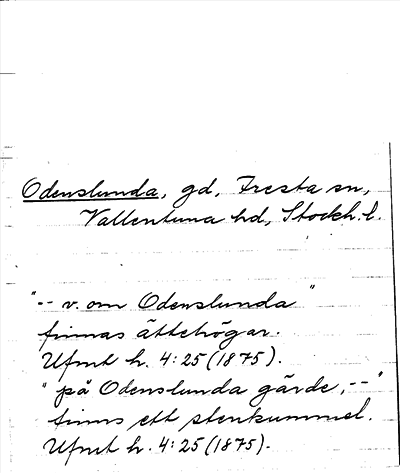 Odenslunda, gd, Fresta sn,
Vallentuna hd, Stockh. l.
"-- v. om Odenslunda"
finnas ättehögar.
Ufmt h. 4:25 (1875).
"på Odenslunda gärde, --"
finns ett stenkummel.
Ufmt h. 4:25 (1875).